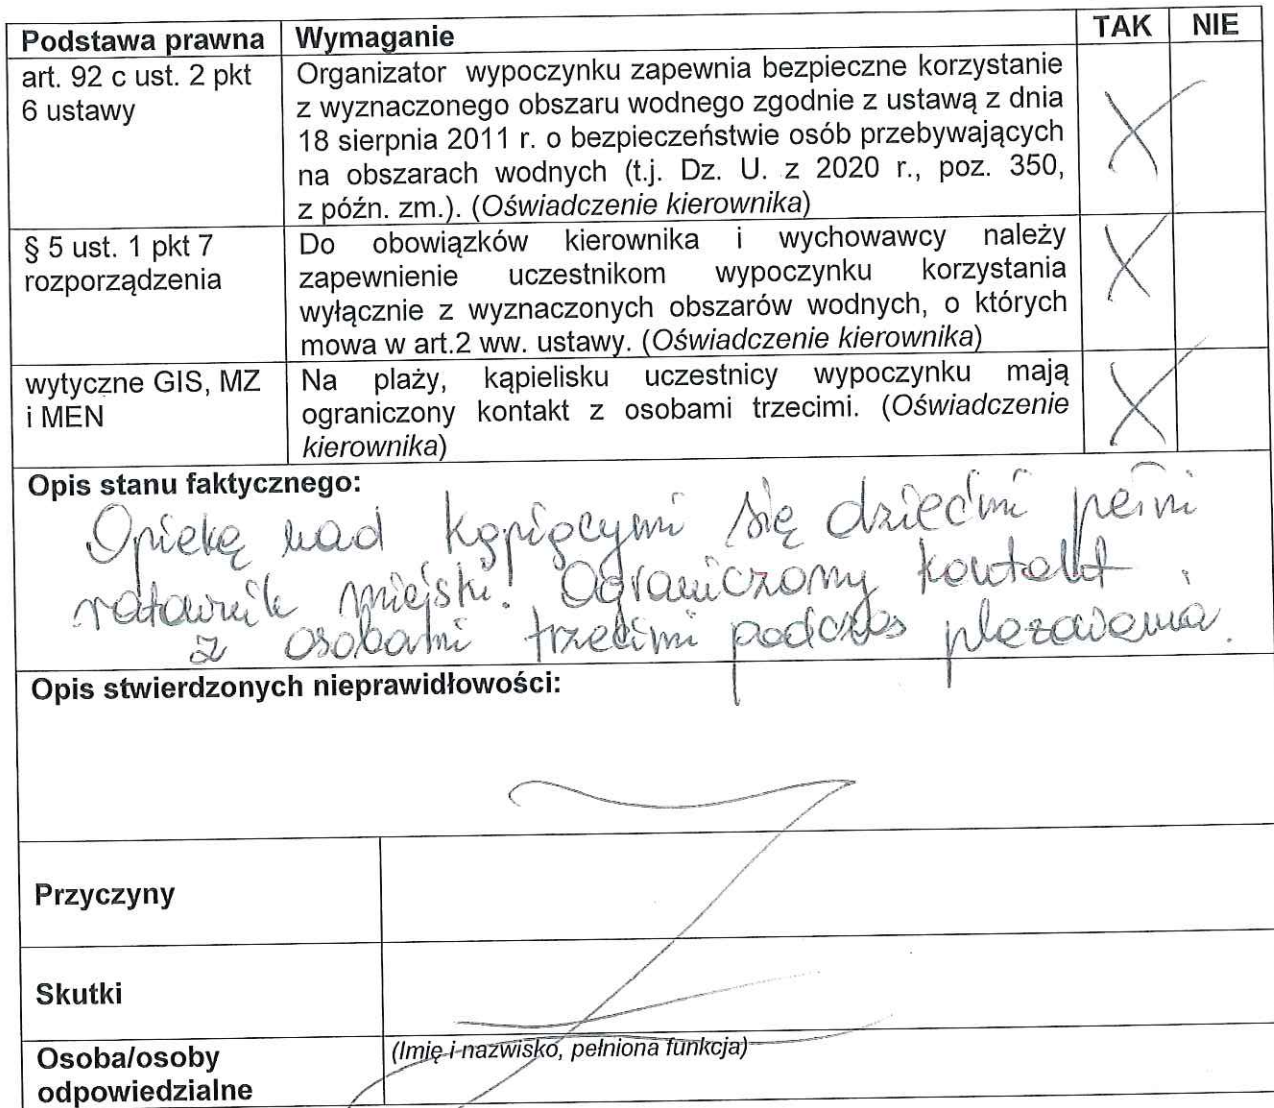 Podstawa prawna Wymaganie TAK NIE
art. 92 c ust. 2 pkt Organizator wypoczynku zapewnia bezpieczne korzystanie
6 ustawy z wyznaczonego obszaru wodnego zgodnie z ustawą z dnia
18 sierpnia 2011 r. o bezpieczeństwie osób przebywających
na obszarach wodnych (t.j. Dz. U. z 2020 r., poz. 350,
z późn. zm.). (Oświadczenie kierownika)
§ 5 ust. 1 pkt 7 Do obowiązków kierownika i wychowawcy należy
rozporządzenia zapewnienie uczestnikom wypoczynku korzystania
wyłącznie z wyznaczonych obszarów wodnych, o których
mowa w art.2 ww. ustawy. (Oświadczenie kierownika)
wytyczne GIS, MZ Na plaży, kąpielisku uczestnicy wypoczynku mają
i MEN ograniczony kontakt z osobami trzecimi. (Oświadczenie
kierownika)
Opis stanu faktycznego:
Opiekę nad kąpiącymi się dziećmi pełni
ratownik miejski. Ograniczony kontakt
z osobami trzecimi podczas plażowania.
Opis stwierdzonych nieprawidłowości:
Przyczyny
Skutki
Osoba/osoby (Imię i nazwisko, pełniona funkcja)
odpowiedzialne